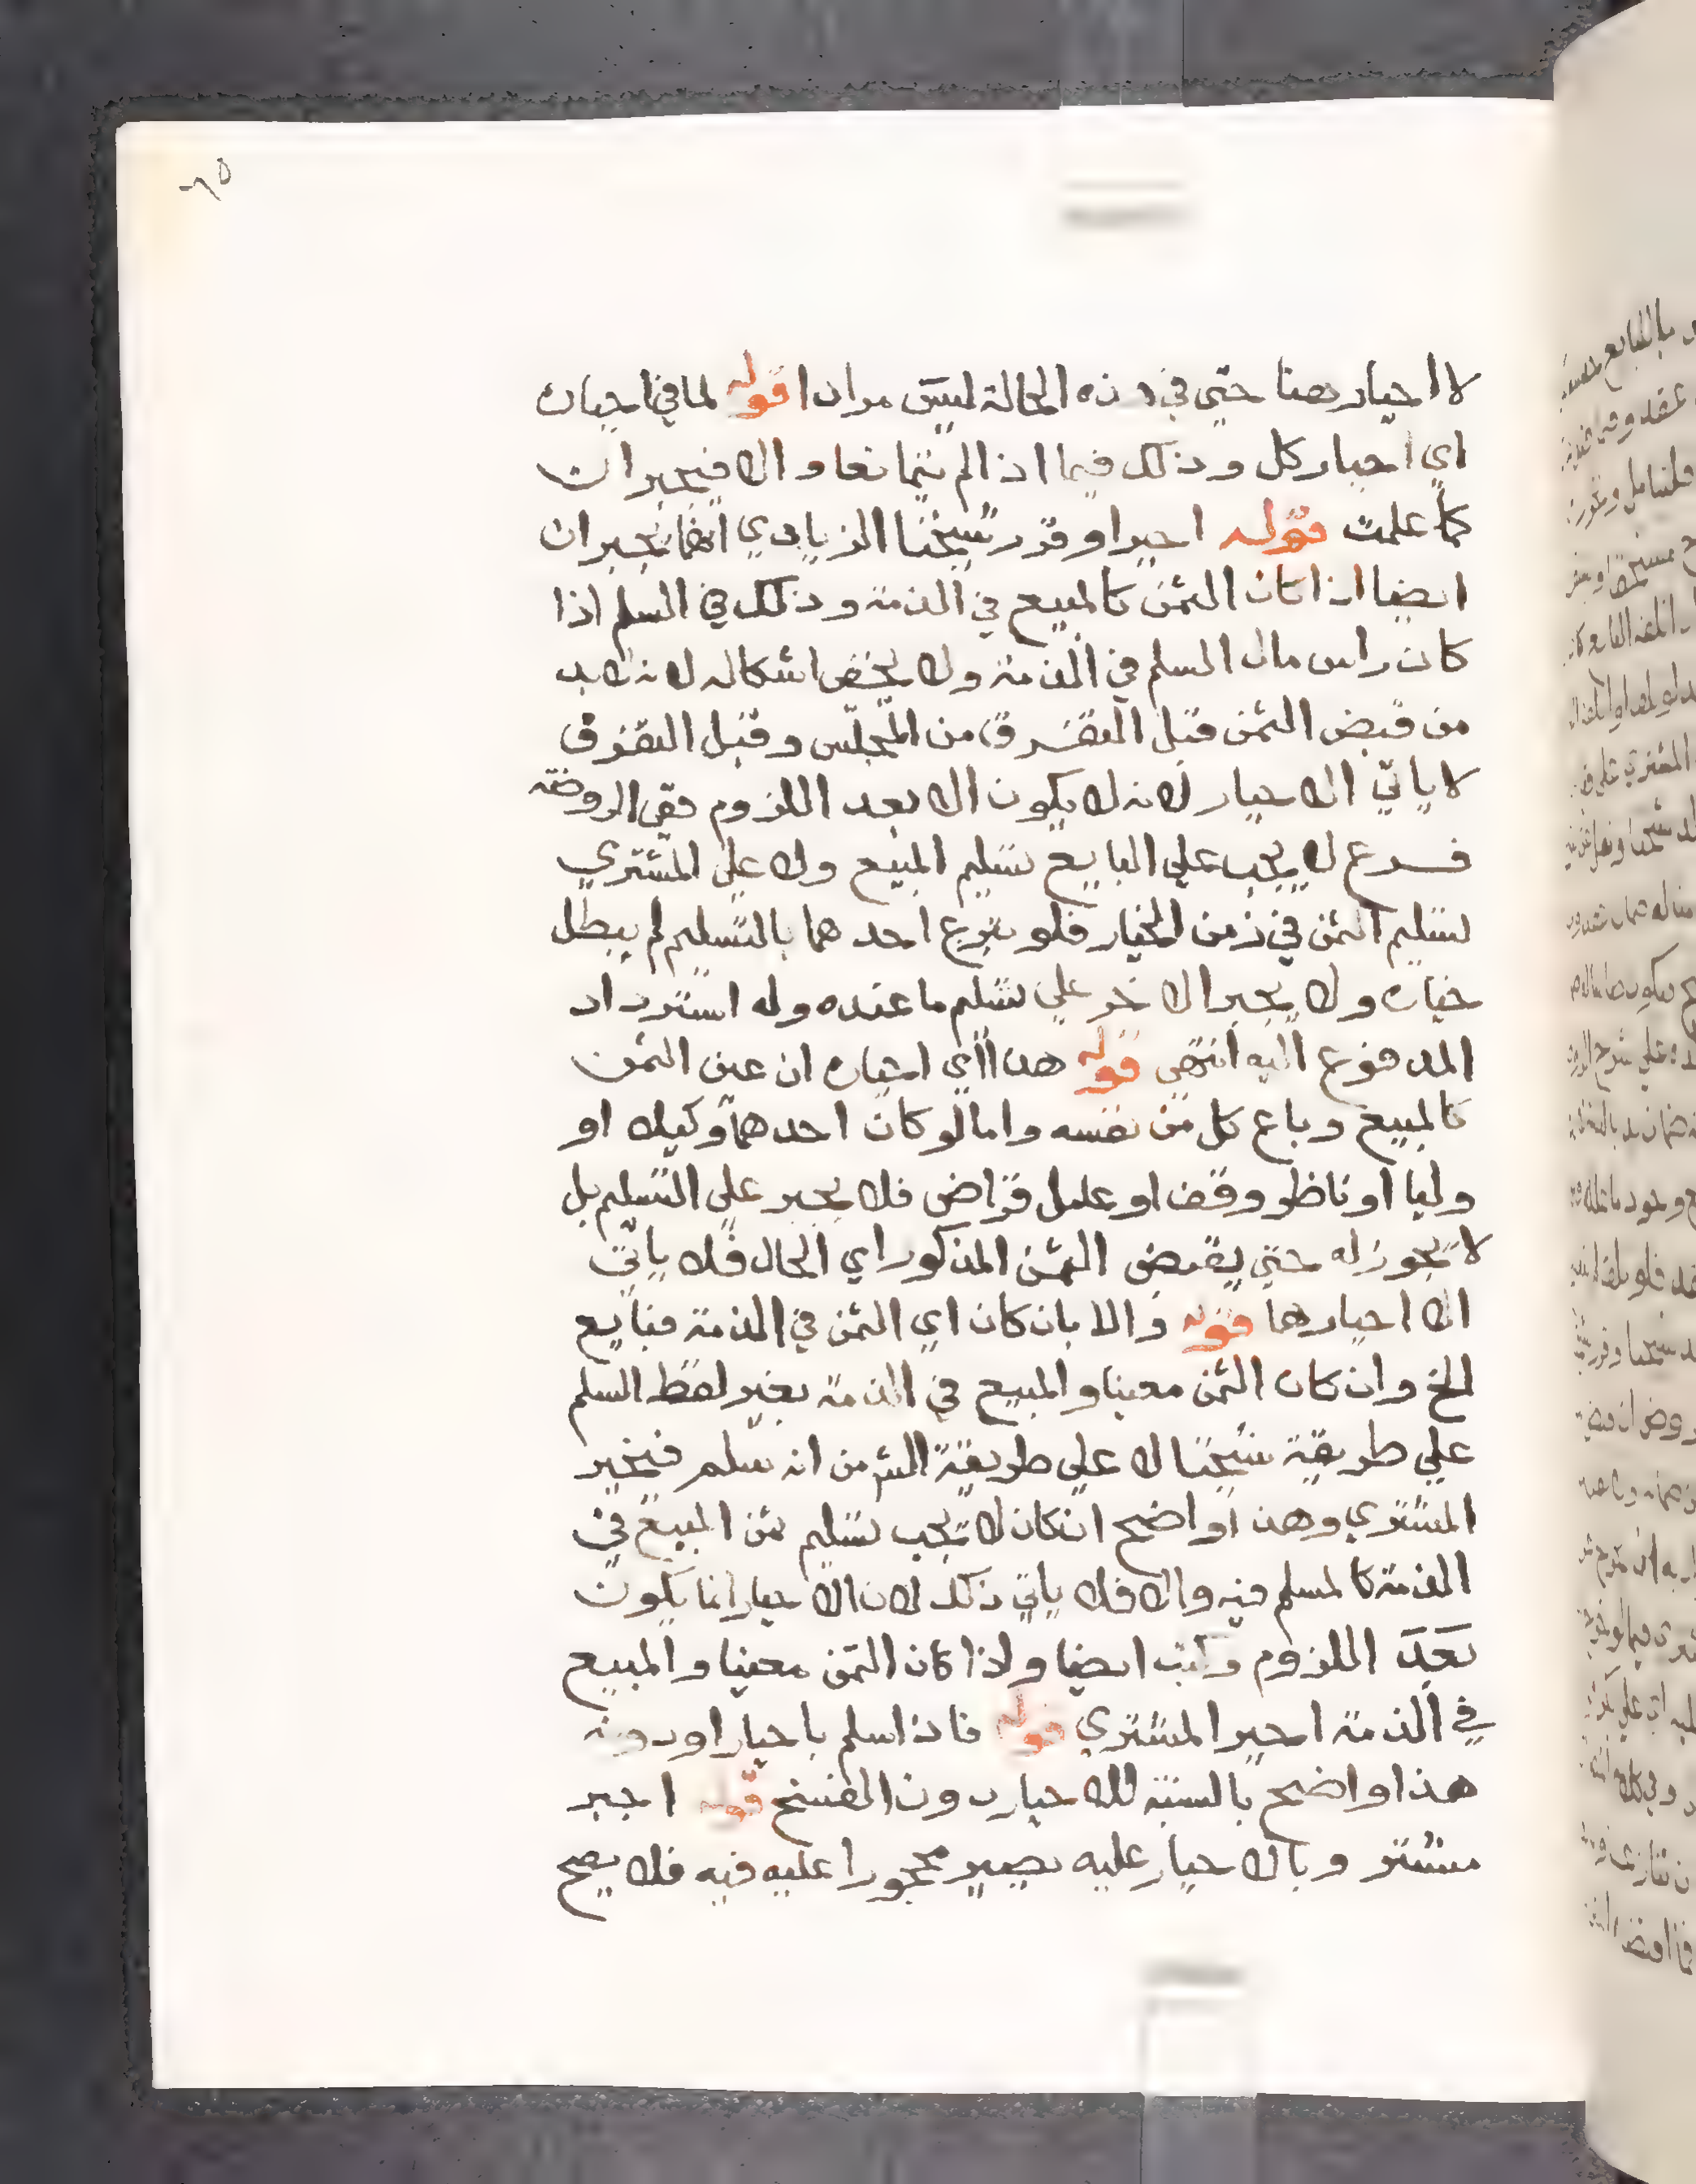 ٦٥
لا اجبار هنا حتى في هذه الحالة ليس مرادا قوله لما في اجباره
اي اجبار كل وذلك فيما اذا لم يتمانعا والا فيجبران
كما علمت قوله اجبرا وقرر شيخنا الزيادي انهما يجبران
ايضا اذا كان الثمن كالمبيع في الذمة وذلك في السلم اذا
كان راس مال السلم في الذمة ولا يخفى اشكاله لانه لابد
من قبض الثمن قبل التفرق من المجلس وقبل التفرق
لا ياتي الاجبار لانه لا يكون الا بعد اللزوم ففي الروضة
فرع لا يجب على البايع تسليم المبيع ولا على المشتري
تسليم الثمن في زمن الخيار فلو تبرع احدهما بالتسليم لم يبطل
خياره ولا يجبر الاخر على تسليم ما عنده وله استرداد
المدفوع اليه انتهى قوله هذا اي اجباره ان عين الثمن
كالمبيع وباع كل من نفسه واما لو كان احدهما وكيلا او
وليا او ناظر وقف او عامل قراض فلا يجبر على التسليم بل
لا يجوز له حتى يقبض الثمن المذكور اي الحال فلا ياتي
الا اجبارهما قوله والا بان كان اي الثمن في الذمة فبايع
الخ وان كان الثمن معينا والمبيع في الذمة بغير لفظ السلم
على طريقة شيخنا لا على طريقة الش من انه سلم فيجبر
المشتري وهذا واضح ان كان لا يجب تسليم ثمن المبيع في
الذمة كالمسلم فيه والا فلا ياتي ذلك لان الاجبار انما يكون
بعد اللزوم وكتب ايضا واذا كان الثمن معينا والمبيع
في الذمة اجبر المشتري قوله فاذا سلم باجبار او دونه
هذا واضح بالنسبة للاجبار دون الفسخ قوله اجبر
مشتر وبالاجبار عليه يصير محجورا عليه فيه فلا يصح